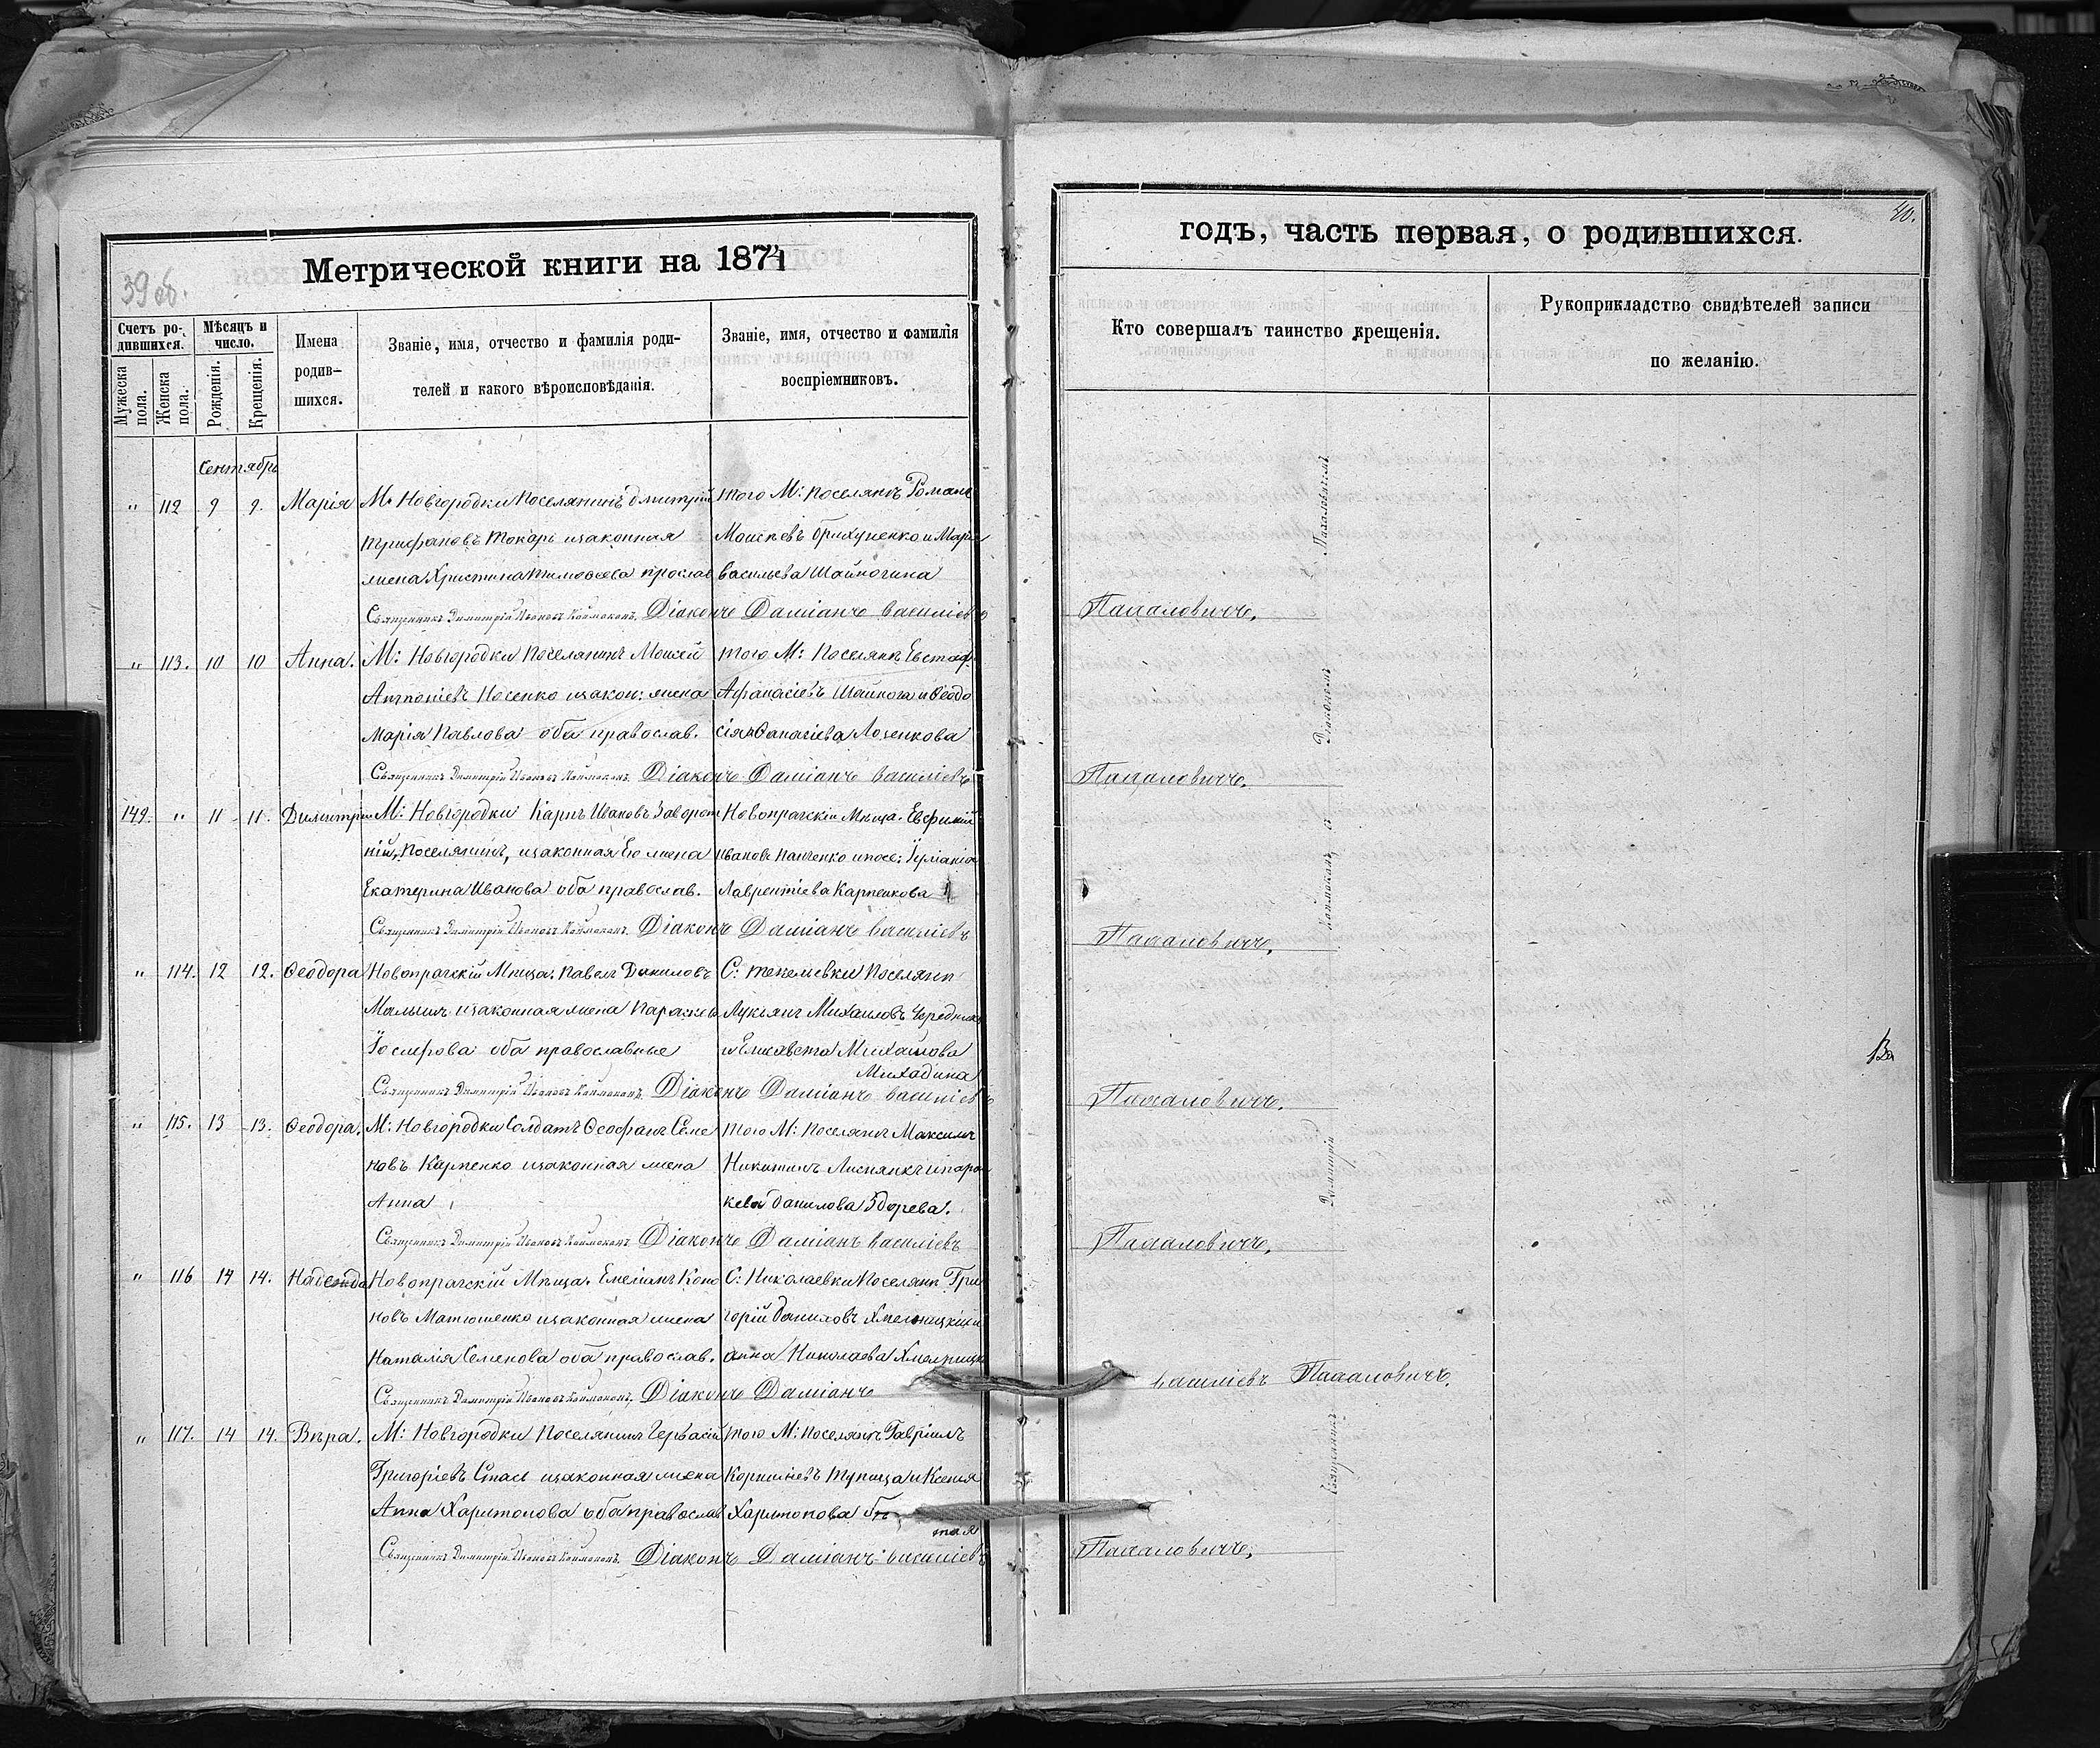 39 об.
Метрической книги на 1874
Счетъ ро-
дившихся.
Мужеска пола.
Женска пола.
Мѣсяцъ и
число.
Рожденія.
Крещенія.
Имена
родив-
шихся.
Званіе, имя, отчество и фамилія роди-
телей и какого вѣроисповѣданія.
Званіе, имя, отчество и фамилія
воспріемниковъ.
Сентябрь
" 112 9 9. Марія М. Новгородки Поселянинъ Дмитрій
Трифановъ Токарь изаконная
жена Христина Тимовѣева
того М: Поселянъ Романъ
Васильева
Священникъ Димитрій Ивановъ Кай­маканъ. Діаконъ Даміанъ Василіевъ
" 113. 10 10 Анна. М: Новгородки Поселянинъ Моисей
Антоніевъ Носенко изакон: жена
Марія Павлова оба православ.
того М: Поселян Евстаф.
Афанасіевъ Шайнога и Ѳеодо
сія
Священникъ Димитрій Ивановъ Каймаканъ. Діаконъ Даміанъ Василіевъ
149. " 11 11. Димитрій М: Новгородки Карпъ Ивановъ Заворот
ній, Поселянинъ, изаконная Его жена
Екатерина Иванова оба православ.
Новопражскій Мѣща. Евфимій
Ивановъ Панченко ипосе: Іуліанія
Лаврентіева Карпенкова
Священникъ Димитрій Ивановъ Каймаканъ. Діаконъ Даміанъ Василіевъ
" 114. 12 12. Ѳеодора Новопражскій Мѣща. Павелъ Даниловъ
изаконная жена Параскев
Іосифова оба православные
С: Поселян
Лукьянъ Михаиловъ Чередник
и Елисавета Михаилова
Священникъ Димитрій Ивановъ Каймаканъ. Діаконъ Даміанъ Василіев
" 115. 13 13. Ѳеодора. М: Новгородки Солдатъ Ѳеофанъ Семе
новъ Карпенко изаконная жена
Анна
того М: Поселянъ Максимъ
Никитинъ ипарас
кева Данилова
Священникъ Димитрій Ивановъ Каймаканъ. Діаконъ Даміанъ Василіевъ
" 116 14 14. Надежда Новопражскій Мѣща. Емеліанъ Коно
новъ Матюшенко изаконная жена
Наталія Семенова оба православ.
С: Николаевки Поселян Гри
горій Даниловъ Хмельницкій и
анна Николаева
Священникъ Димитрій Ивановъ Каймаканъ. Діаконъ Даміанъ
" 117. 14 14. Вѣра. М: Новгородки Поселянинъ Гервасій
Григоріевъ Спась изаконная жена
Анна Харитонова оба православ
того М: Поселянъ Гавріилъ
Корниліевъ и Ксенія
Харитонова
Священникъ Димитрій Ивановъ Каймаканъ. Діаконъ Даміанъ Василіевъ
40.
годъ, часть первая, о родившихся.
Кто совершалъ таинство крещенія.
Рукоприкладство свидѣтелей записи
по желанію.
Папаловичъ.
Папаловичъ.
Папаловичъ.
Папаловичъ.
Папаловичъ.
Василіевъ Папаловичъ.
Папаловичъ.
Священникъ Димитрій Каймаканъ съ Діакономъ Папаловичемъ